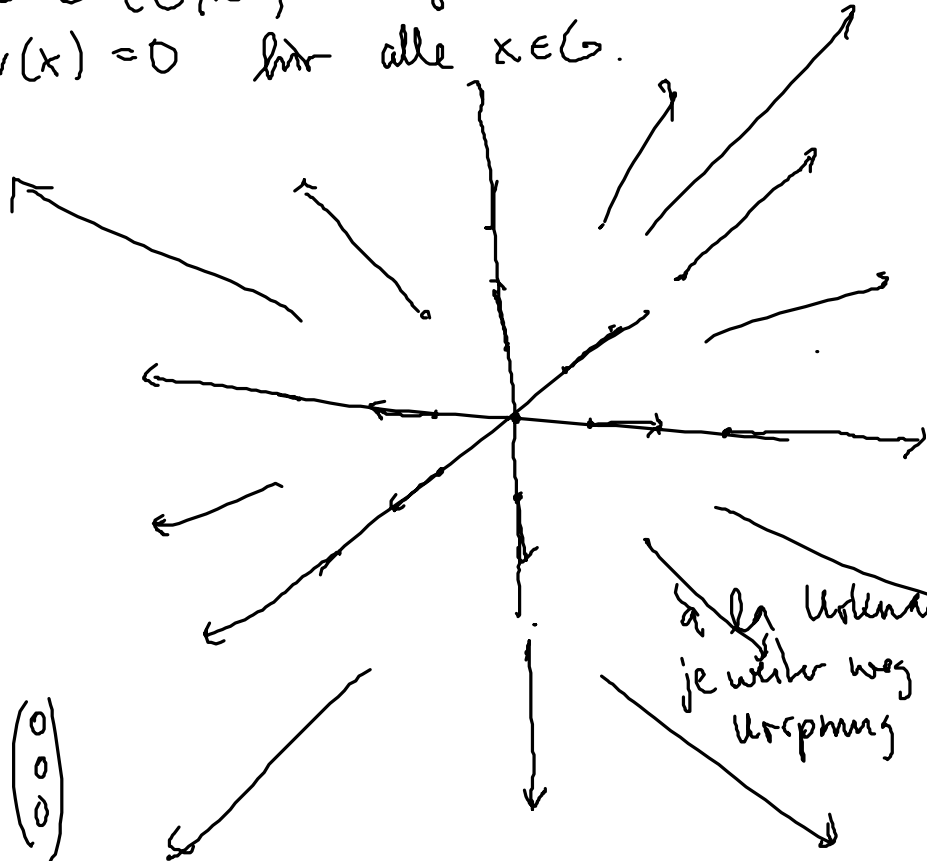 v(x) = 0 für alle x ∈ G.
à la
je weiter weg
Ursprung
(0
0
0)